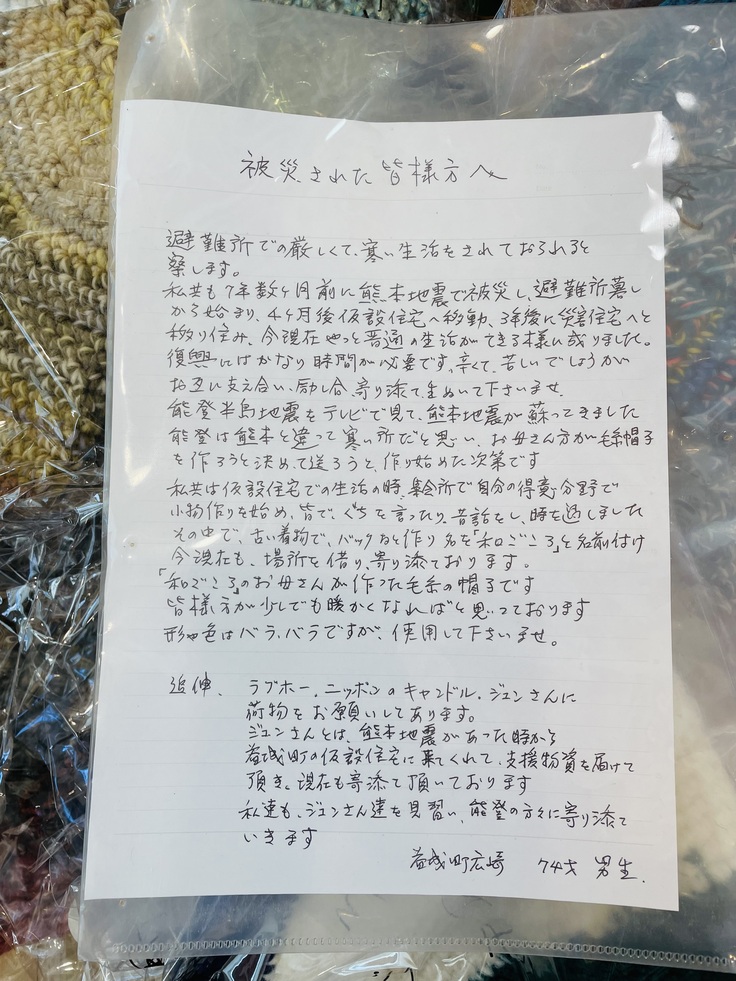 被災された皆様方へ
避難所での厳しくて、寒い生活をされておられると
察します。
私共も7年数ヶ月前に熊本地震で被災し、避難所暮し
から始まり、4ヶ月後仮設住宅へ移動、3年後に災害住宅へと
移り住み、今現在やっと普通の生活ができる様に成りました。
復興にはかなり時間が必要です、辛くて、苦しいでしょうが
お互い支え合い、励し合、寄り添て生ぬいて下さいませ、
能登半島地震をテレビで見て、熊本地震が蘇ってきました
能登は熊本と違って寒い所だと思い、お母さん方が毛糸帽子
を作ろうと決めて送ろうと、作り始めた次第です
私共は仮設住宅での生活の時、集会所で自分の得意分野で
小物作りを始め、皆で、ぐちを言ったり、昔話をし、時を過しました
その中で、古い着物で、バックなど作り名を「和ごころ」と名前付け
今現在も、場所を借り、寄り添ております。
「和ごころ」のお母さんが作った毛糸の帽子です
皆様方が少しでも暖かくなればと思っております
形や色はバラ、バラですが、使用して下さいませ。
追伸、ラブホー、ニッポンのキャンドル・ジュンさんに
荷物をお願いしてあります。
ジュンさんとは、熊本地震があった時から
益城町の仮設住宅に来てくれて、支援物資を届けて
頂き、現在も寄添て頂いております
私達も、ジュンさん達を見習い、能登の方々に寄り添て
いきます
益城町広崎 74才 男性.